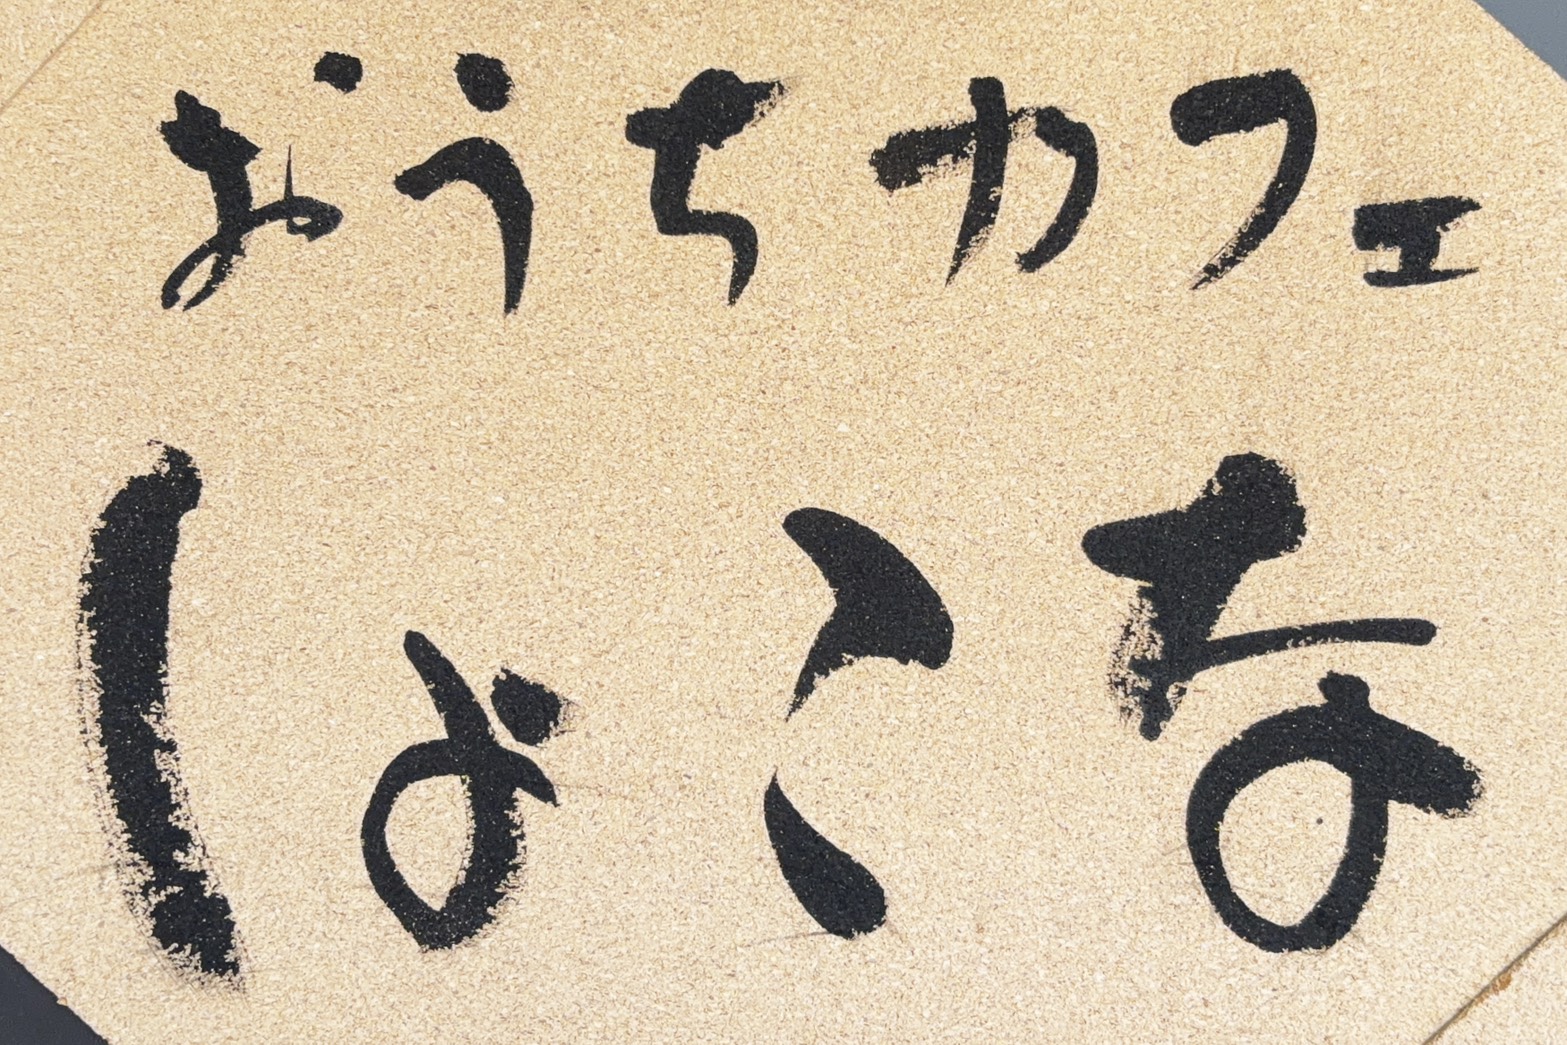 おうちカフェ
しょこな